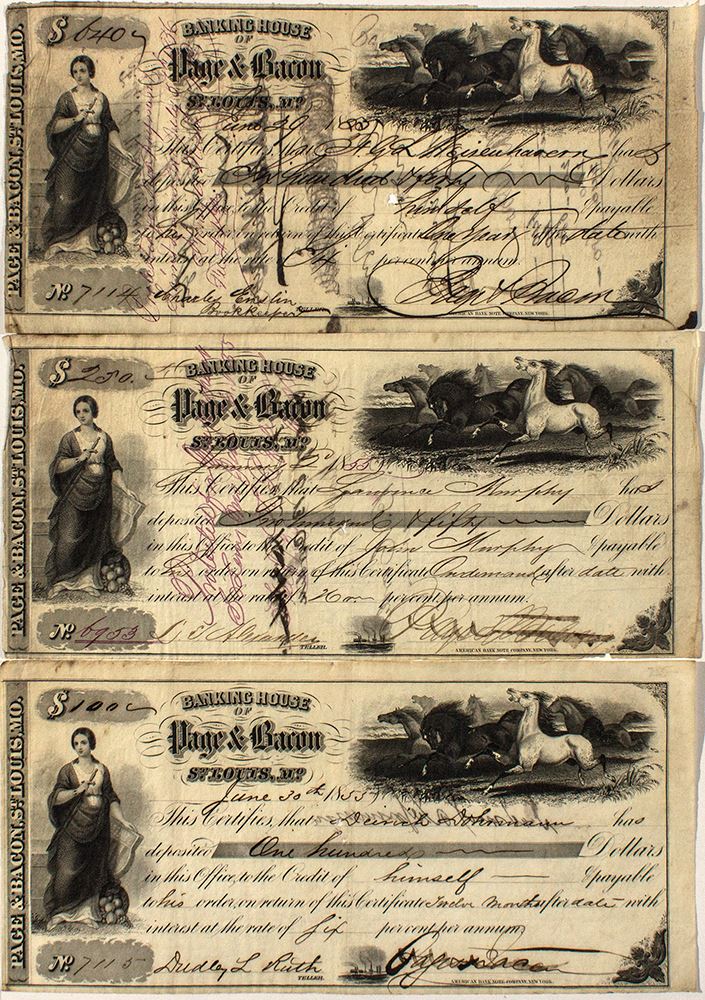 PAGE & BACON, ST LOUIS, MO.
$ 640
BANKING HOUSE
OF
Page & Bacon
ST LOUIS, Mo
June 29 1855
This Certifies, that has
deposited Six hundred & forty Dollars
in this Office, to the Credit of himself payable
to his order, on return of this Certificate One Year after date with
interest at the rate of Six per cent. per annum.
No 7114 Charley Enslin Page & Bacon
Bookkeeper TELLER.
AMERICAN BANK NOTE COMPANY, NEW YORK.
PAGE & BACON, ST LOUIS, MO.
$ 250.
BANKING HOUSE
OF
Page & Bacon
ST LOUIS, Mo
January 1855
This Certifies, that Lawrence Murphy has
deposited Two hundred & fifty Dollars
in this Office, to the Credit of John Murphy payable
to his order, on return of this Certificate On demand after date with
interest at the rate of per cent. per annum.
No 6953 Alexander
TELLER.
AMERICAN BANK NOTE COMPANY, NEW YORK.
PAGE & BACON, ST LOUIS, MO.
$ 100
BANKING HOUSE
OF
Page & Bacon
ST LOUIS, Mo
June 30th 1855
This Certifies, that has
deposited One hundred Dollars
in this Office, to the Credit of himself payable
to his order, on return of this Certificate Twelve Months after date with
interest at the rate of Six per cent. per annum.
No 7115 Dudley L Ruth Page & Bacon
TELLER.
AMERICAN BANK NOTE COMPANY, NEW YORK.